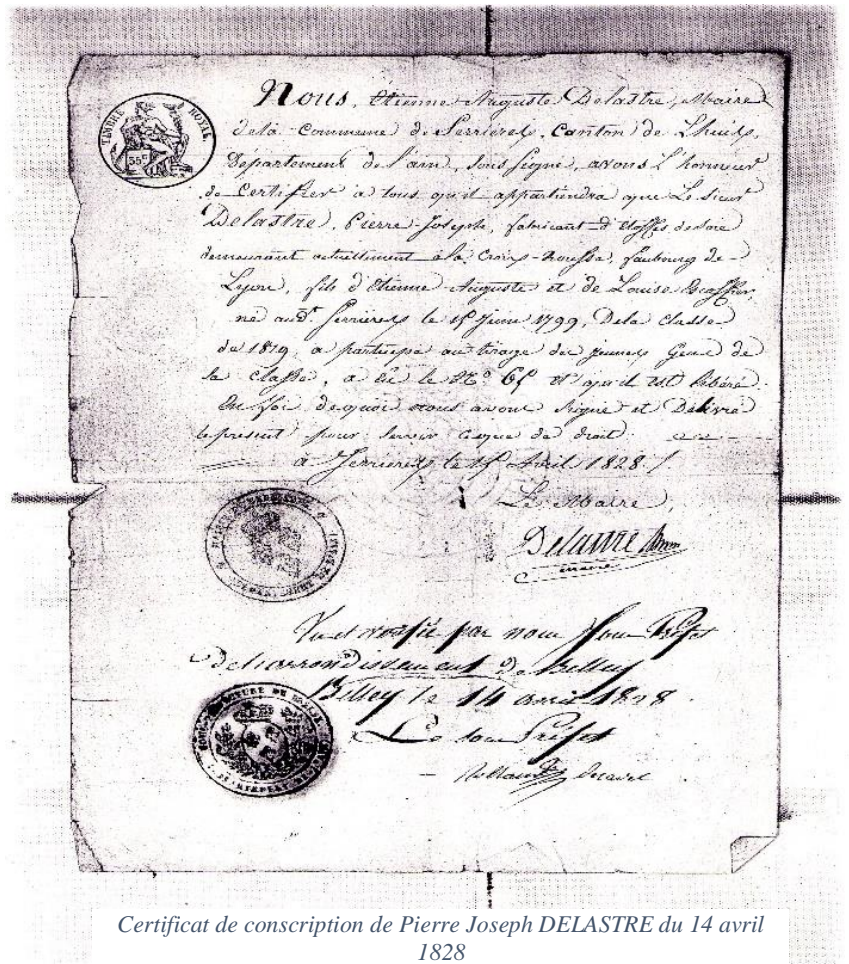 TIMBRE ROYAL
35c
Nous, Etienne Auguste Delastre, Maire
de la Commune de Serrières, Canton de Lhuis,
Département de l'ain, sous signé, avons l'honneur
de Certifier à tous qu'il appartiendra que Le sieur
Delastre, Pierre-Joseph, fabricant d'étoffes de soie
demeurant actuellement à la Croix-Rousse, faubourg de
Lyon, fils d'Etienne Auguste et de Louise
né audt. Serrières le Juin 1799, De la Classe
de 1819, a participé au tirage des jeunes Gens de
la Classe, a eu le No. et qu'il est libéré.
En foi de quoi nous avons signé et Délivré
le présent pour servir ce que de droit.
à Serrières le Avril 1828 /.
Le Maire,
Delastre
maire
Vu et vérifié par nous Sous Préfet
De l'arrondissement de Belley
Belley le 14 avril 1828
Le sous Préfet
Certificat de conscription de Pierre Joseph DELASTRE du 14 avril
1828